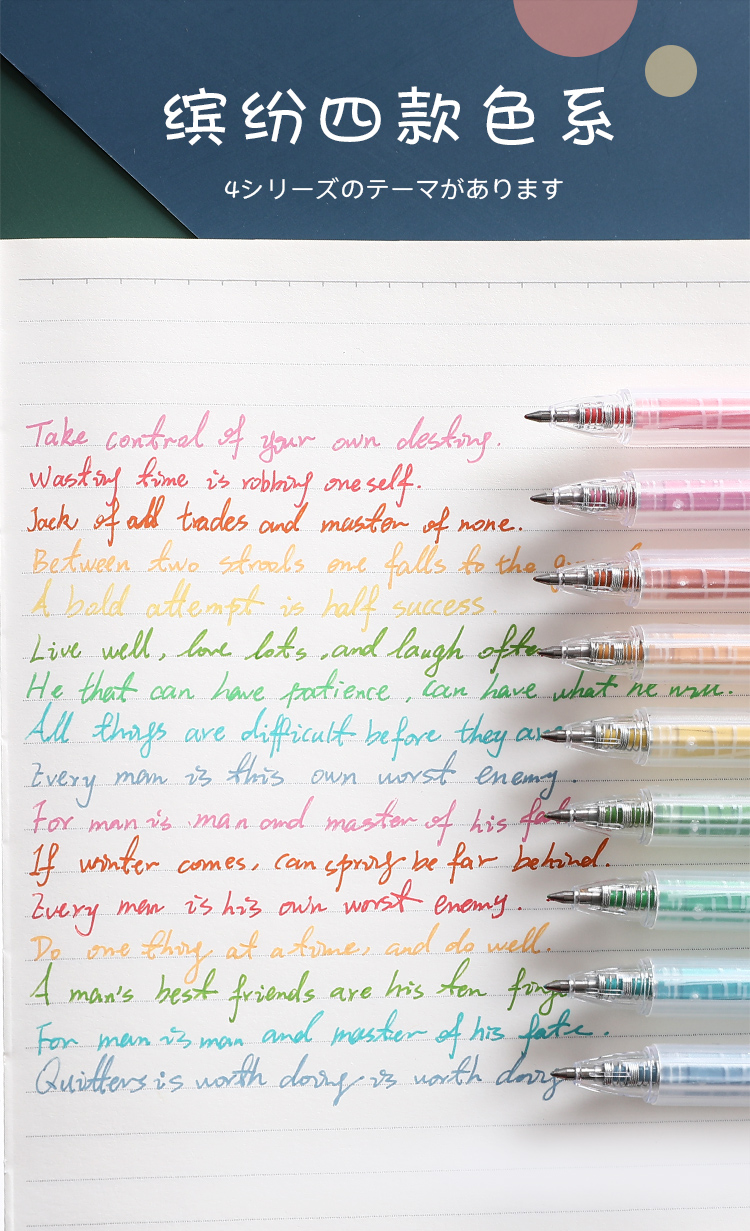 缤纷四款色系
4シリーズのテーマがあります
Take control of your own destiny.
Wasting time is robbing oneself.
Jack of all trades and master of none.
Between two strools one falls to the
A bold attempt is half success.
Live well, love lots, and laugh often
He that can have patience, can have what he will.
All things are difficult before they are
Every man is this own worst enemy.
For man is man and master of his
If winter comes, can spring be far behind.
Every man is his own worst enemy.
Do one thing at a time, and do well.
A man's best friends are his ten
For man is man and master of his fate.
Quitters is worth doing is worth doing